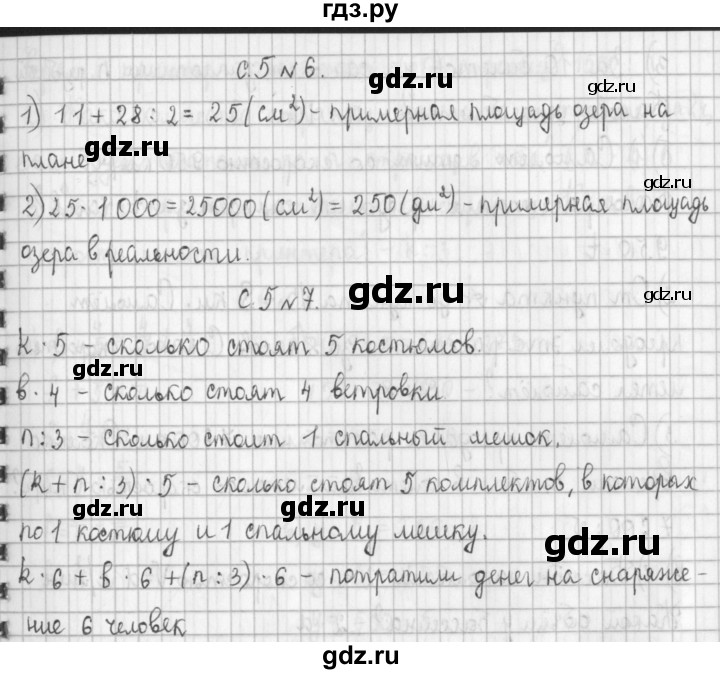 гдз.ру
С. 5 № 6.
gdz.ru
gdz.ru
1) 11 + 28 : 2 = 25 (см²) - примерная площадь озера на
плане
gdz.ru
gdz.ru
2) 25 · 1 000 = 25000 (см²) = 250 (дм²) - примерная площадь
озера в реальности.
С. 5 № 7.
gdz.ru
gdz.ru
k · 5 - сколько стоят 5 костюмов.
gdz.ru
в · 4 - сколько стоят 4 ветровки
n : 3 - сколько стоит 1 спальный мешок.
(k + n : 3) · 5 - сколько стоят 5 комплектов, в которых
gdz.ru
по 1 костюму и 1 спальному мешку.
gdz.ru
k · 6 + в · 6 + (n : 3) · 6 - потратили денег на снаряже-
ние 6 человек
gdz.ru